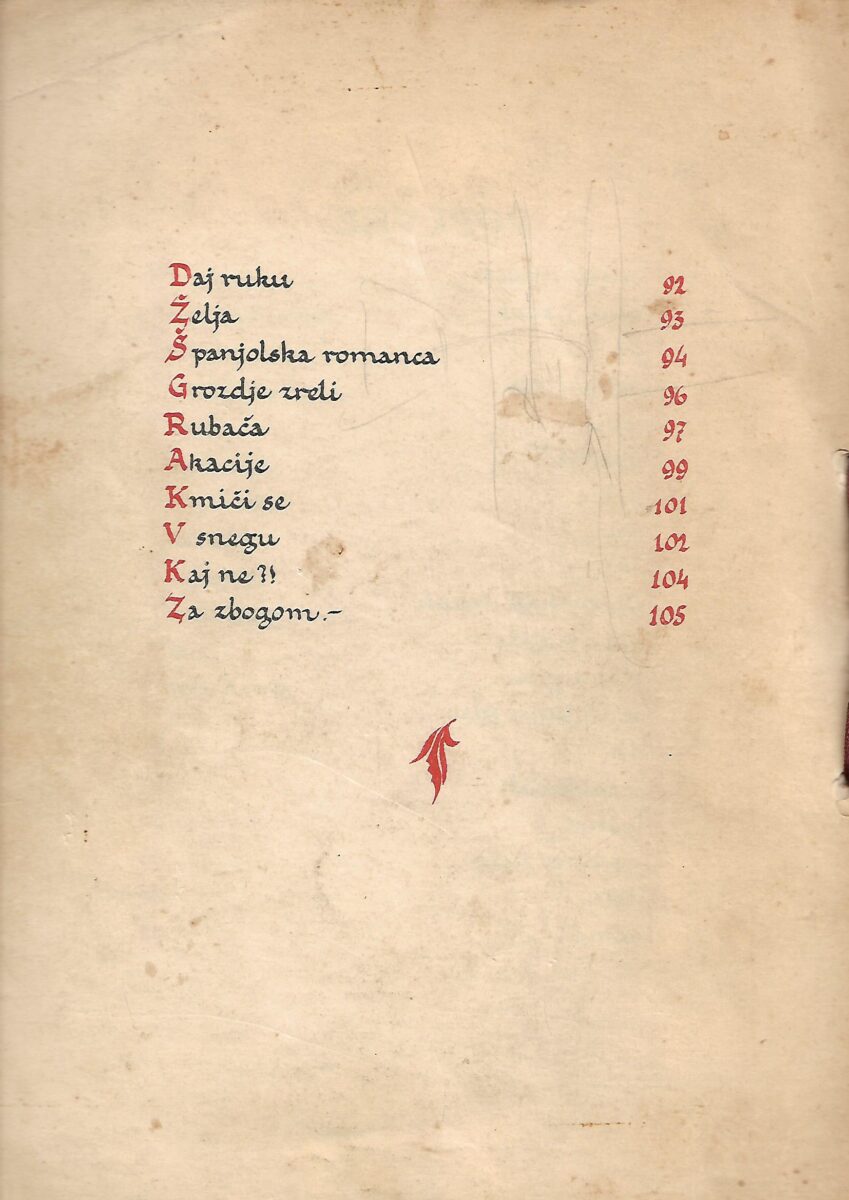 Daj ruku 92
Želja 93
Španjolska romanca 94
Grozdje zreli 96
Rubača 97
Akacije 99
Kmiči se 101
V snegu 102
Kaj ne?! 104
Za zbogom.- 105